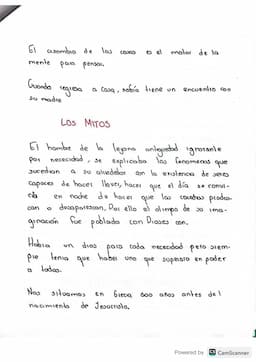 El asombro de las cosas es el motor de la
mente para pensar.
Cuando regresa a casa, sofía tiene un encuentro con
su madre
LOS MITOS
El hombre de la lejana antiguedad ignorante
por necesidad, se explicaba los fenomenos que
sucedian a su alrededor con la existencia de seres
capaces de hacer llover, hacer que el día se convir-
en noche de hacer que las cosechas produz-
can o desaparezcan. Por ello el olimpo de su ima-
ginación fue poblado con Dioses con.
Habia un dios para cada necesidad pero siem-
pre tenia que haber uno que superara en poder
a todos.
Nos situamos en Grecia 500 años antes del
nacimiento de Jesucristo.
Powered by CS CamScanner